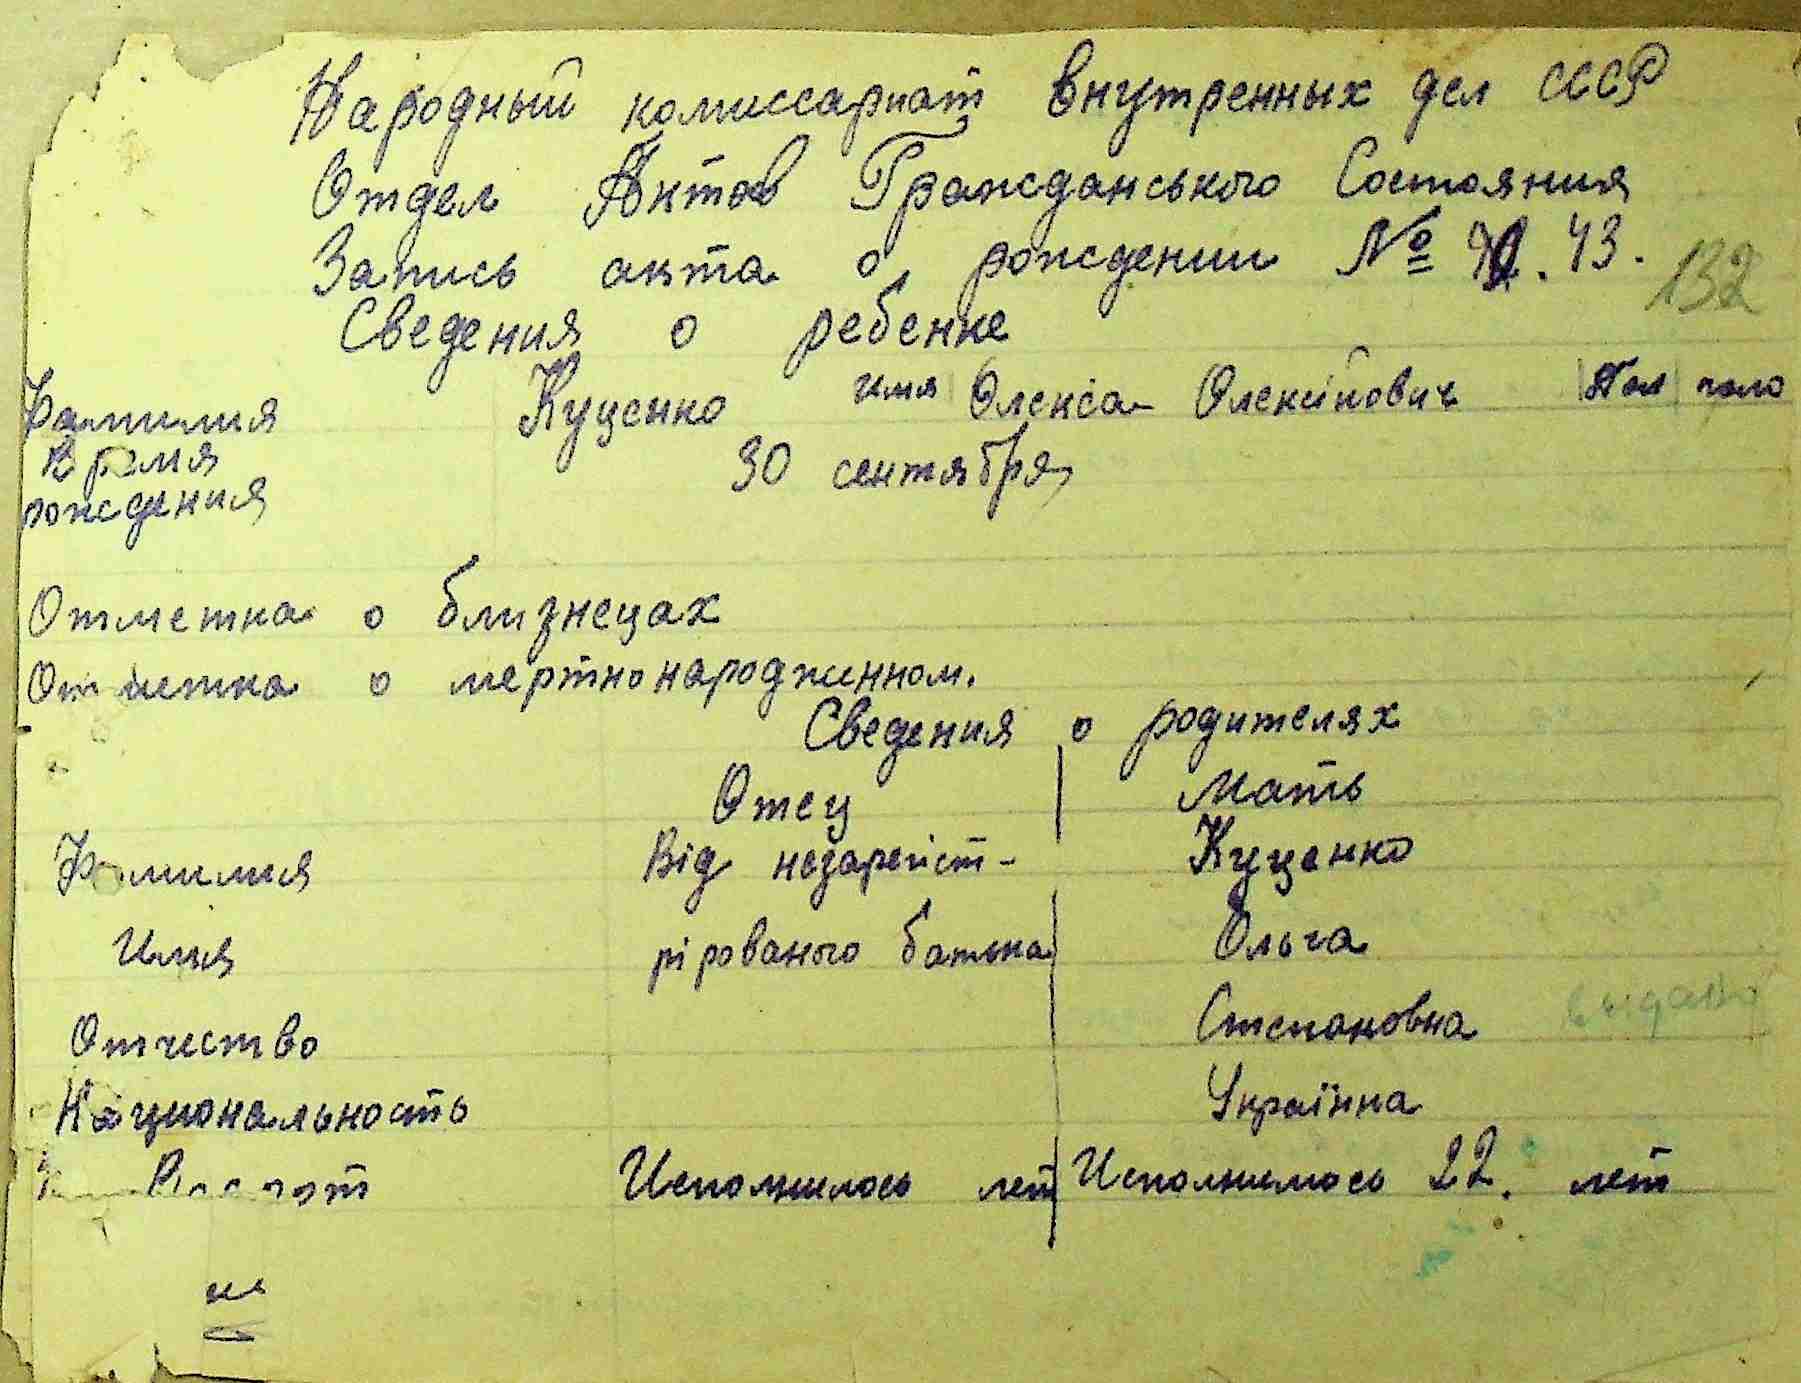 Народный комиссариат внутренных дел СССР
Отдел Актов Гражданського Состояния
Запись акта о рождении № 43.
132
Сведения о ребенке
Фамилия Куценко имя Олекса Олексійович Пол
Время 30 сентября
рождения
Отметка о близнецах
Отметка о мертнонародженном.
Сведения о родителях
Отец Мать
Фамилия Від незарегіст- Куценко
Имя рірованого батька Ольга
Отчество Степановна
Национальность Українка
Возраст Исполнилось лет Исполнилось 22. лет